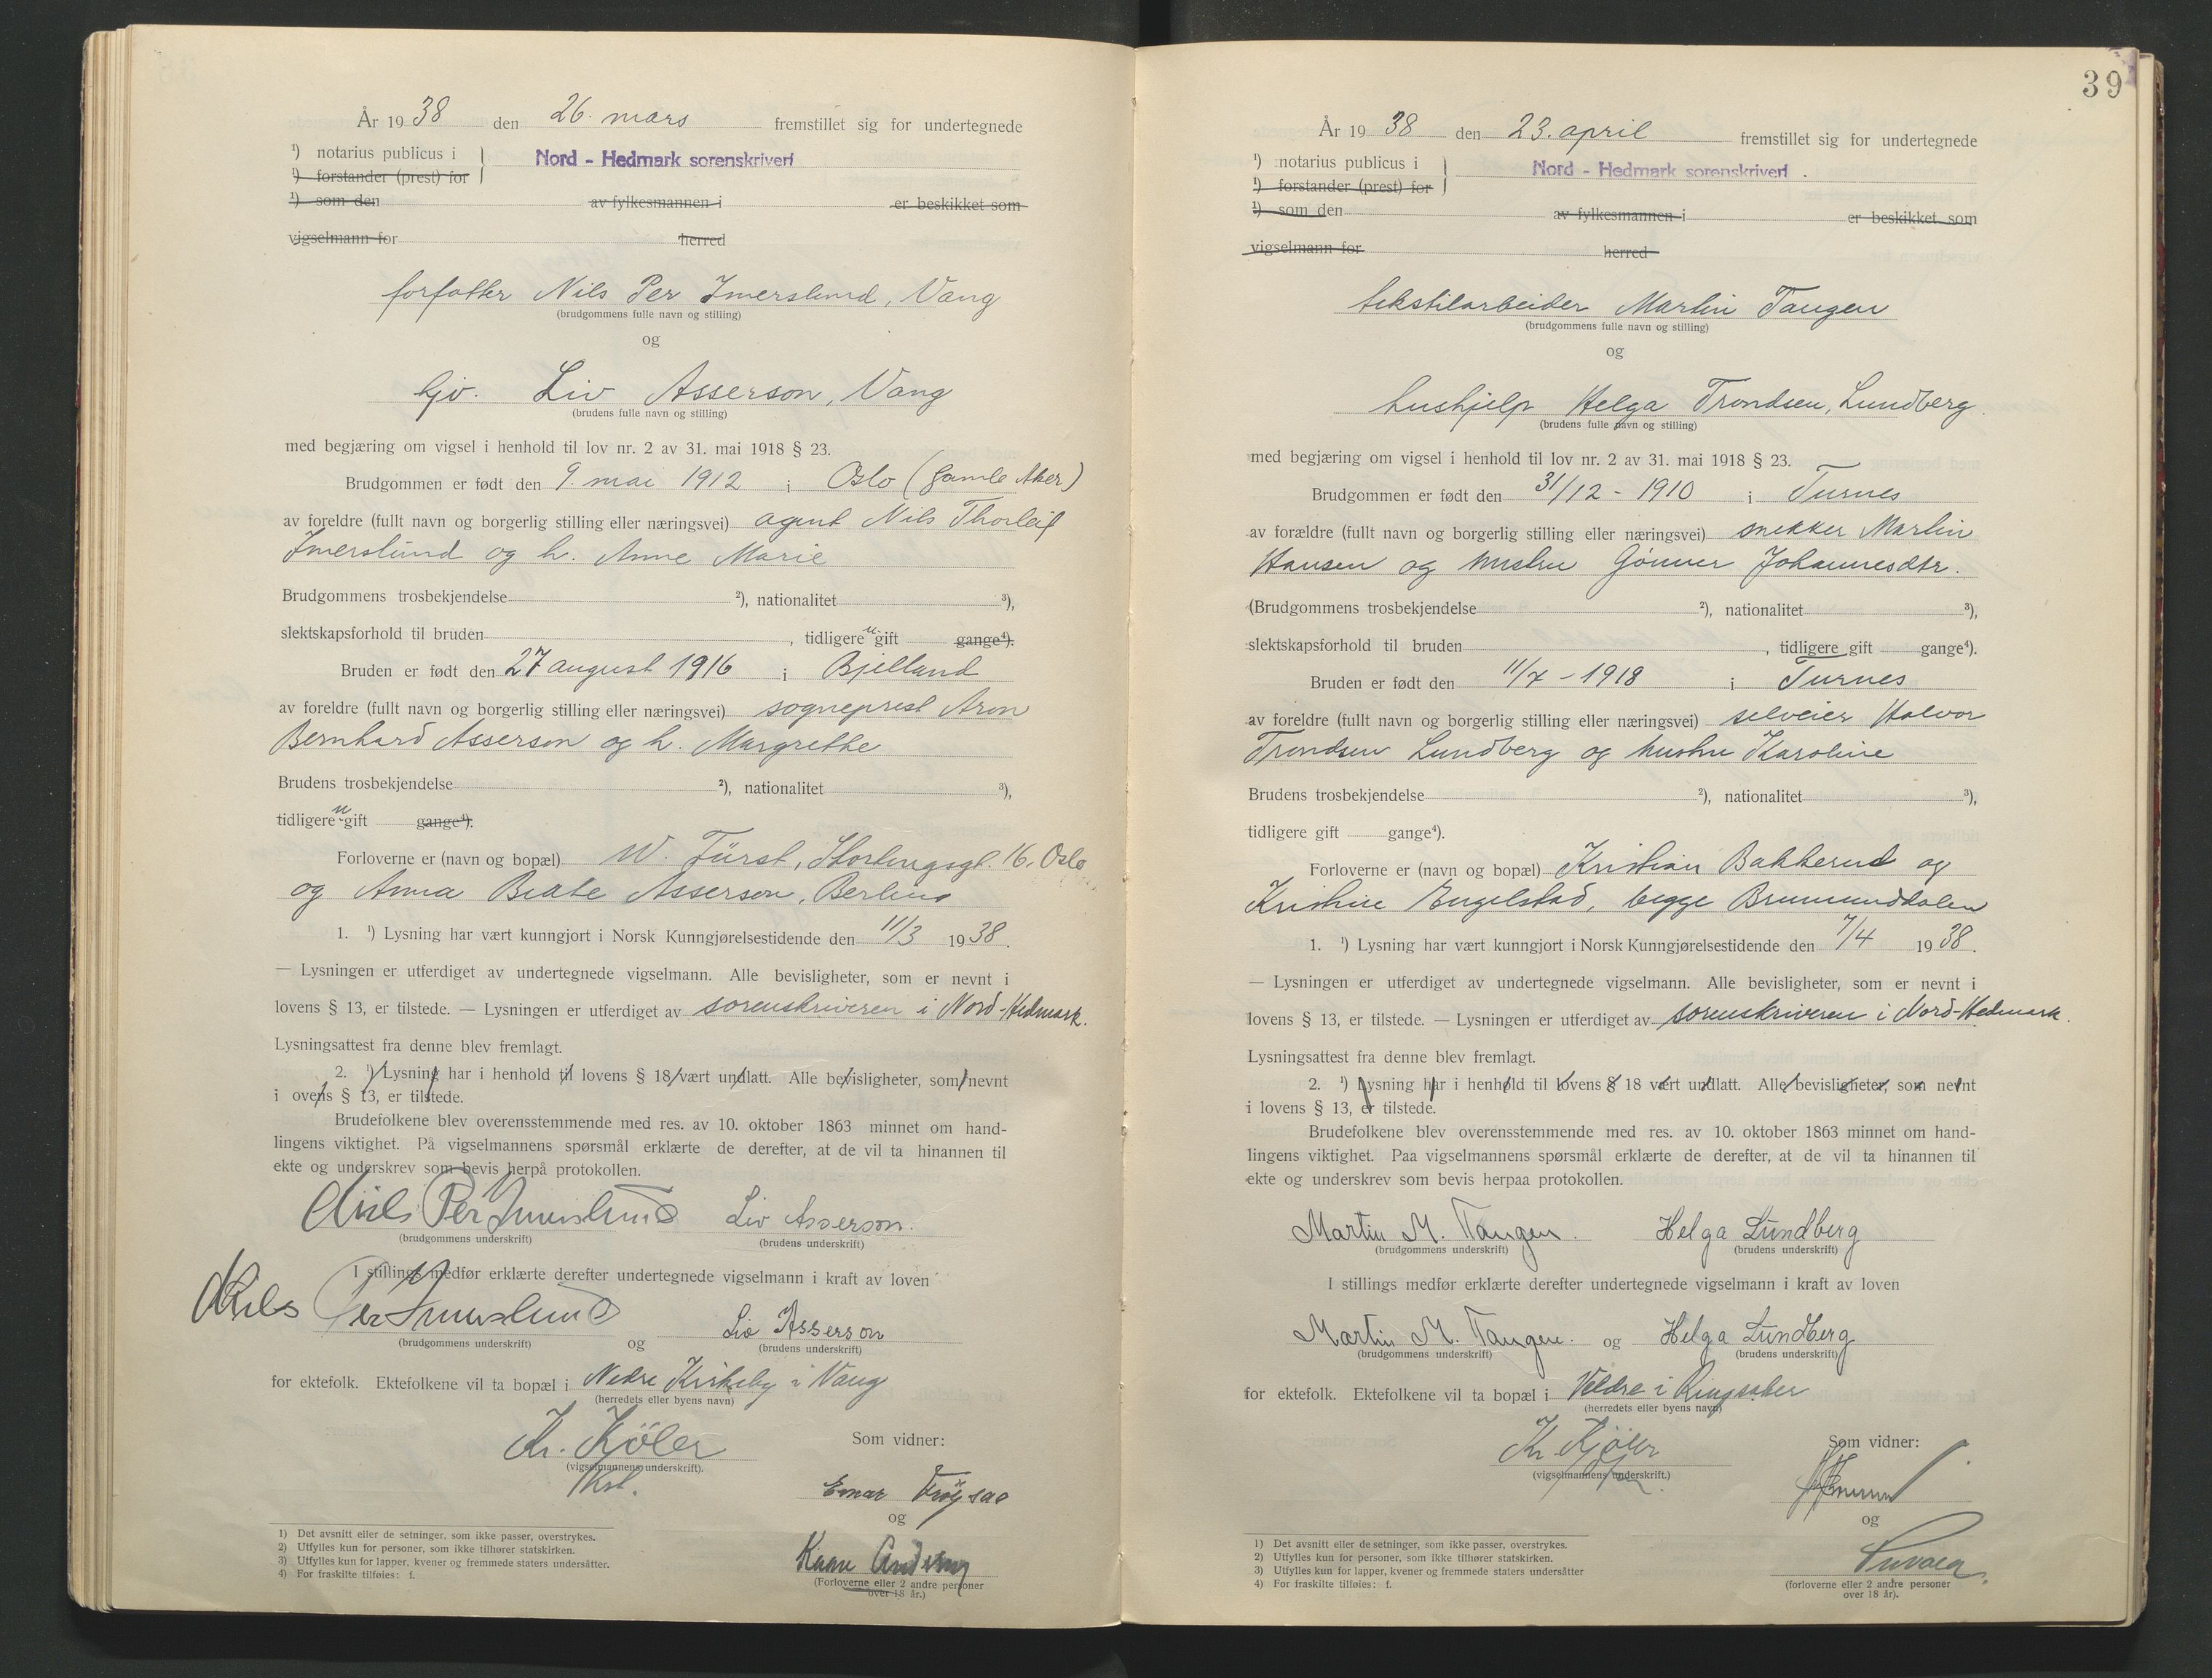 År 1938 den 26. mars fremstillet sig for undertegnede
¹) notarius publicus i } Nord - Hedmark sorenskriveri
¹) forstander (prest) for
¹) som den av fylkesmannen i er beskikket som
vigselmann for herred
forfatter Nils Per Imerslund, Vang
(brudgommens fulle navn og stilling)
og
hjv. Liv Asserson, Vang
(brudens fulle navn og stilling)
med begjæring om vigsel i henhold til lov nr. 2 av 31. mai 1918 § 23.
Brudgommen er født den 9. mai 1912 i Oslo (Gamle Aker)
av foreldre (fullt navn og borgerlig stilling eller næringsvei) agent Nils Thorleif
Imerslund og h. Anne Marie
Brudgommens trosbekjendelse ²), nationalitet ³),
slektskapsforhold til bruden , tidligere u-gift gange⁴).
Bruden er født den 27 august 1916 i Bjelland
av foreldre (fullt navn og borgerlig stilling eller næringsvei) sogneprest Aron
Bernhard Asserson og h. Margrethe
Brudens trosbekjendelse ²), nationalitet ³),
tidligere u-gift gange⁴).
Forloverne er (navn og bopæl) W. Fürst, Stortingsgt. 16, Oslo
og Anna Beate Asserson, Berlin
1. ¹) Lysning har vært kunngjort i Norsk Kunngjørelsestidende den 11/3 1938.
— Lysningen er utferdiget av undertegnede vigselmann. Alle bevisligheter, som er nevnt i
lovens § 13, er tilstede. — Lysningen er utferdiget av sorenskriveren i Nord-Hedmark.
Lysningsattest fra denne blev fremlagt.
2. ¹) Lysning har i henhold til lovens § 18 vært undlatt. Alle bevisligheter, som nevnt
i ovens § 13, er tilstede.
Brudefolkene blev overensstemmende med res. av 10. oktober 1863 minnet om hand-
lingens viktighet. På vigselmannens spørsmål erklærte de derefter, at de vil ta hinannen til
ekte og underskrev som bevis herpå protokollen.
Nils Per Imerslund Liv Asserson.
(brudgommens underskrift) (brudens underskrift)
I stillings medfør erklærte derefter undertegnede vigselmann i kraft av loven
Nils Per Imerslund og Liv Asserson
(brudgommens underskrift) (brudens underskrift)
for ektefolk. Ektefolkene vil ta bopæl i Nedre Kirkeby i Vang
(herredets eller byens navn)
Kr. Köler
(vigselmannens underskrift).
Som vidner:
Einar
og
Kaare
(Forloverne eller 2 andre personer
over 18 år.)
1) Det avsnitt eller de setninger, som ikke passer, overstrykes.
2) Utfylles kun for personer, som ikke tilhører statskirken.
3) Utfylles kun for lapper, kvener og fremmede staters undersåtter.
4) For fraskilte tilføies: f.
39
År 1938 den 23. april fremstillet sig for undertegnede
¹) notarius publicus i } Nord - Hedmark sorenskriveri .
¹) forstander (prest) for
¹) som den av fylkesmannen i er beskikket som
vigselmann for herred
tekstilarbeider Martin Tangen
(brudgommens fulle navn og stilling)
og
hushjelp Helga Trondsen, Lundberg.
(brudens fulle navn og stilling)
med begjæring om vigsel i henhold til lov nr. 2 av 31. mai 1918 § 23.
Brudgommen er født den 31/12 - 1910 i Furnes
av forældre (fullt navn og borgerlig stilling eller næringsvei) snekker Martin
Hansen og hustru Gønner Johannesdtr.
(Brudgommens trosbekjendelse ²), nationalitet ³),
slektskapsforhold til bruden , tidligere gift gange⁴).
Bruden er født den 11/7 - 1918 i Furnes
av foreldre (fullt navn og borgerlig stilling eller næringsvei) selveier Halvor
Trondsen Lundberg og hustru Karoline
Brudens trosbekjendelse ²), nationalitet ³),
tidligere gift gange⁴).
Forloverne er (navn og bopæl) Kristian Bakkerud og
Kristine Engelstad, begge Brumunddalen
1. ¹) Lysning har vært kunngjort i Norsk Kunngjørelsestidende den 7/4 1938.
— Lysningen er utferdiget av undertegnede vigselmann. Alle bevisligheter, som er nevnt i
lovens § 13, er tilstede. — Lysningen er utferdiget av sorenskriveren i Nord-Hedmark.
Lysningsattest fra denne blev fremlagt.
2. ¹) Lysning har i henhold til lovens § 18 vært undlatt. Alle bevisligheter, som nevnt
i lovens § 13, er tilstede.
Brudefolkene blev overensstemmende med res. av 10. oktober 1863 minnet om hand-
lingens viktighet. Paa vigselmannens spørsmål erklærte de derefter, at de vil ta hinannen til
ekte og underskrev som bevis herpaa protokollen.
Martin M. Tangen. Helga Lundberg
(brudgommens underskrift) (brudens underskrift)
I stillings medfør erklærte derefter undertegnede vigselmann i kraft av loven
Martin M. Tangen. og Helga Lundberg
(brudgommens underskrift) (brudens underskrift)
for ektefolk. Ektefolkene vil ta bopæl i Veldre i Ringsaker
(herredets eller byens navn)
Kr
(vigselmannens underskrift.)
Som vidner:
og
(forloverne eller 2 andre personer
over 18 år).
1) Det avsnitt eller de setninger, som ikke passer, overstrykes.
2) Utfylles kun for personer, som ikke tilhører statskirken.
3) Utfylles kun for lapper, kvener og fremmede staters undersåtter
4) For fraskilte tilføies: f.